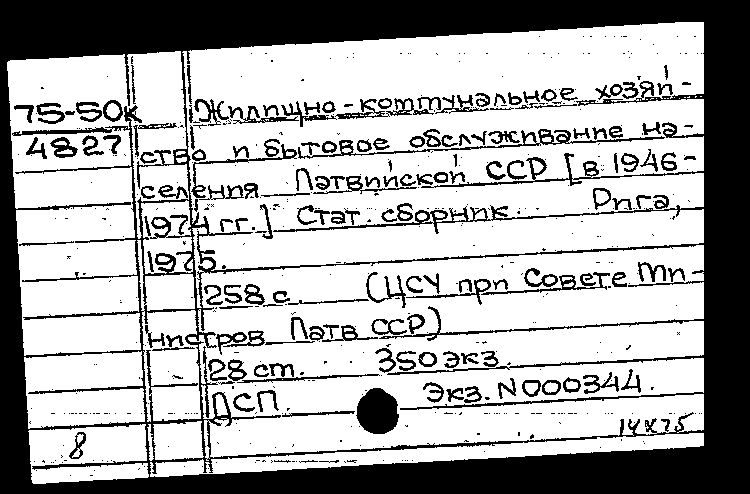 75-50к Жилищно-коммунальное хозяй-
4827 ство и бытовое обслуживание на-
селения Латвийской ССР [в 1946-
1974 гг.] Стат. сборник. Рига,
1975.
258 с. (ЦСУ при Совете Ми-
нистров Латв ССР)
28 см. 350 экз.
ДСП. Экз. N000344.
8 14 X 75